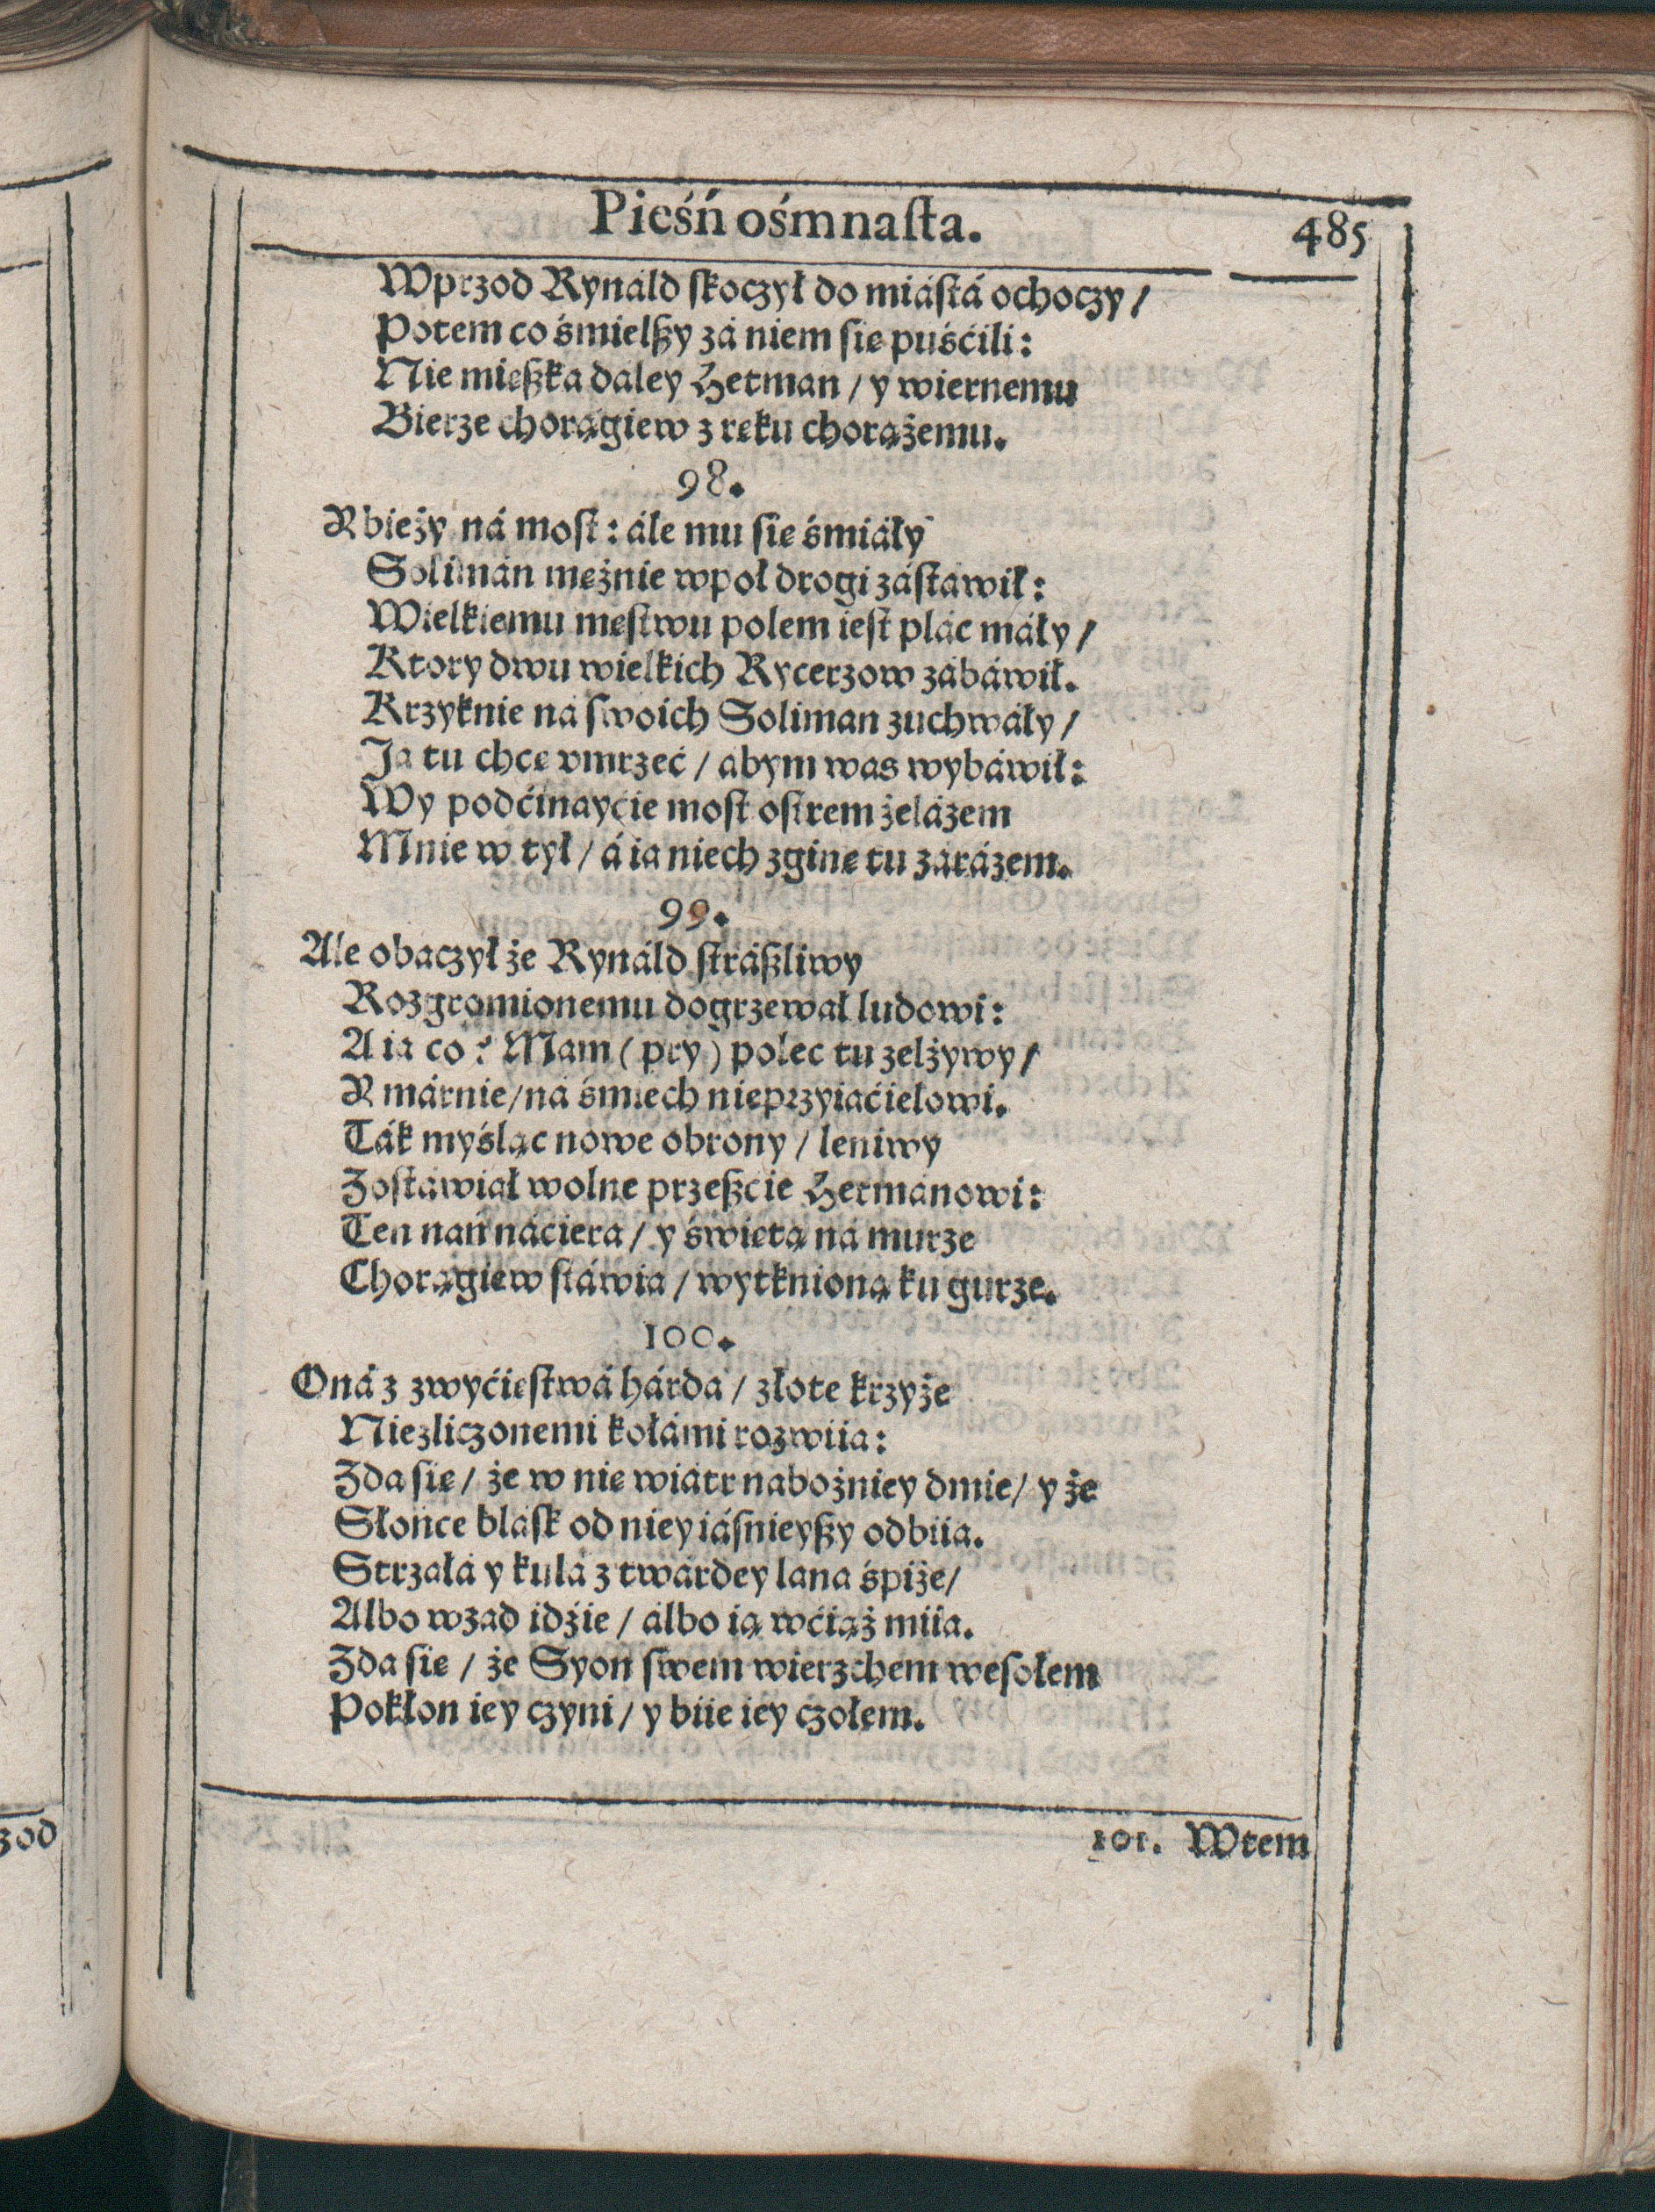 Pieśń ośmnaſta. 485
Wprzod Rynáld ſkoczył do miáſtá ochoczy /
Potem co śmielßy zá niem ſię puśćili:
Nie mießka daley Hetman / y wiernemu
Bierze chorągiew z ręku chorążemu.
98.
Y bieży ná moſt: ále mu ſię śmiáły
Soliman mężnie wpoł drogi záſtáwił:
Wielkiemu męſtwu polem ieſt plác máły /
Ktory dwu wielkich Rycerzow zábáwił.
Krzyknie ná ſwoich Soliman zuchwáły /
Ja tu chcę vmrzeć / abym was wybáwił:
Wy podćinayćie moſt oſtrem żelázem
Mnie w tył / á ia niech zginę tu zárázem.
99.
Ale obaczył że Rynáld ſtráßliwy
Rozgromionemu dogrzewał ludowi:
A ia co? Mam (pry) polec tu zelżywy /
Y márnie / ná śmiech nieprzyiaćielowi.
Ták myśląc nowe obrony / leniwy
Zoſtáwiał wolne przeßćie Hetmánowi:
Ten nań náćiera / y świętą ná murze
Chorągiew ſtáwia / wytknioną ku gurze.
100.
Oná z zwyćięſtwá hárda / złote krzyże
Niezliczonemi kołámi rozwiia:
Zda ſię / że w nię wiátr nabożniey dmie / y że
Słońce blaſk od niey iáſnieyßy odbiia.
Strzałá y kulá z twárdey lana śpiże /
Albo wzad idźie / álbo ią wćiąż miia.
Zda ſię / że Syon ſwem wierzchem weſołem
Pokłon iey czyni / y biie iey czołem.
101. Wtem
zod